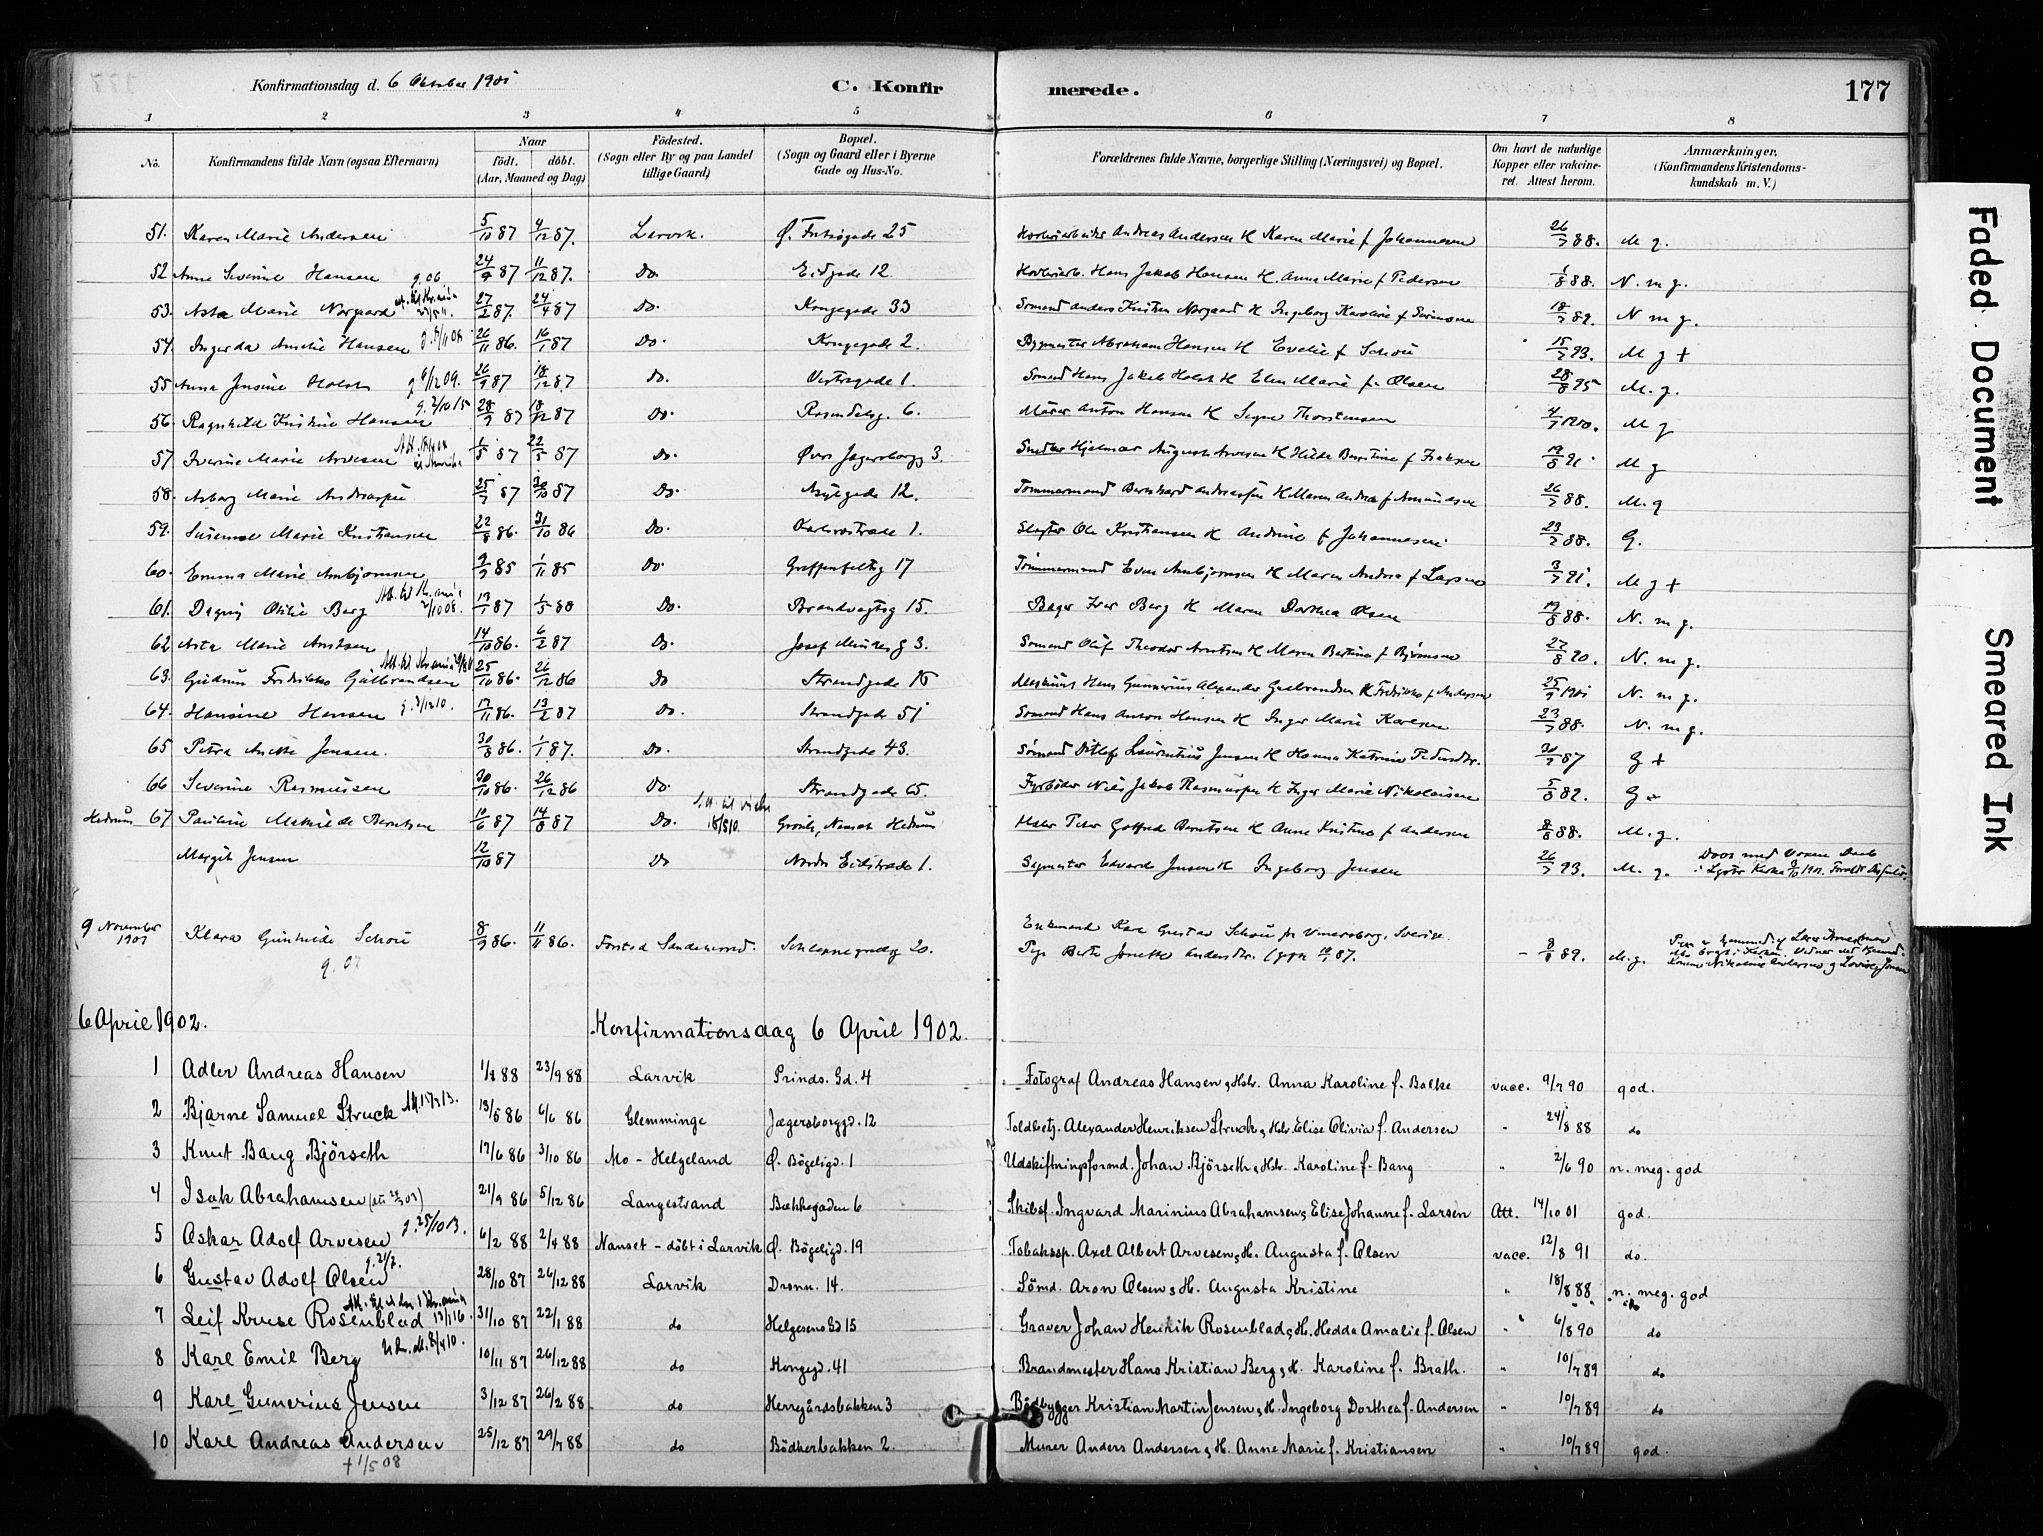 Konfirmationsdag d. 6 Oktober 1901 C. Konfirmerede. 177
1 2 3 4 5 6 7 8
No. Konfirmandens fulde Navn (ogsaa Efternavn) Naar født. døbt. (Aar, Maaned og Dag) Födested. (Sogn eller By og paa Landet tillige Gaard) Bopæl. (Sogn og Gaard eller i Byerne Gade og Hus-No. Forældrenes fulde Navne, borgerlige Stilling (Næringsvei) og Bopæl. Om havt de naturlige Kopper eller vakcineret. Attest herom. Anmærkninger. (Konfirmandens Kristendomskundskab m. V.)
51. Karen Marie Andersen 5/10 87 4/12 87. Larvik. Ø. Fritzøgade 25 Høvleriarbeider Andreas Andersen H Karen Marie f Johannesen 26/7 88. M g.
52 Anne Severine Hansen g. 06 24/9 87 11/12 87. Do. Eidgade 12. Høvleriarb. Hans Jakob Hansen H. Anne Marie f Pedersen 1/8 88. N. m g.
53. Asta Marie Norgaard 27/2 87. 24/4 87 Do. Kongegade 33 Sømand Anders Kristian Norgaard H Ingeborg Karoline f Sørensen 18/7 89. N m g.
54. Ingerda Amalie Hansen 26/11 86. 16/1 87 Do. Kongegade 2. Bygmester Abraham Hansen H Eveline f Schou 15/7 93. M g +
55 Anna Jensine Holst g 6/12 09. 26/9 87 18/12 87 Do. Vestregade 1. Sømand Hans Jakob Holst H Elen Marie f. Olsen 28/8 95 M. g.
56. Ragnhild Kristine Hansen g. 2/10 15 28/9 87 18/12 87 Do. Rosendalsg. 6. Murer Anton Hansen H Signe Thorstensen 4/7 1900. M g
57 Iverine Marie Arvesen 1/5 87 22/5 87 Do. Øvre Jegersborgg 3. Snedker Hjalmar August Arvesen H Hilde Berntine f Isaksen 19/8 91 M g
58. Asborg Marie Andreassen 25/7 87 30/10 87 Do. Asylgade 12. Tømmermand Bernhard Andreassen H Maren Andrea f Amundsen 26/7 88. M. g
59. Susanne Marie Kristiansen 22/8 86. 31/10 86 Do. Karlsrostræde 1. Slagter Ole Kristiansen H Andrine f Johannesen 23/7 88. G.
60. Emma Marie Ambjørnsen 9/9 85 1/11 85 Do. Griffenfeldtg 17 Tømmermand Even Ambjørnsen H Maren Andrea f Larsen 3/7 91. M g +
61. Dagny Otilie Berg 13/1 87 1/5 88 Do. Brandvagtsg 15. Bager Iver Berg H Maren Dorthea Olsen 19/8 88. N. m g.
62. Asta Marie Arntsen 14/10 86. 6/2 87 Do. Josef Müllers g 3. Sømand Oluf Theodor Arntsen H Maren Bertine f Bjørnsen 27/8 90. N. m g.
63. Gudrun Fredrikke Gulbrandsen 25/10 86. 26/12 86 Do Strandgade 15 Maskinist Hans Gunnerius Alexander Gulbrandsen H Fredrikke f Andersen 25/9 1901 N. m g.
64. Hansine Hansen g. 3/12 10. 17/11 86. 13/2 87 Do. Strandgade 51 Sømand Hans Anton Hansen H Inger Marie Karlsen 23/7 88. N. m g.
65 Petra Anette Jensen. 30/8 86. 1/1 87. Do. Strandgade 43. Sømand Ditlef Laurentius Jensen H Hanna Katrine Pedersdtr. 30/7 87 G +
66 Severine Rasmussen 30/10 86. 26/12 86 Do. Strandgade 65. Fyrbøder Niels Jakob Rasmussen H Inger Marie Nikolaisen 5/8 82. G +
Hedrum 67 Pauline Mathilde Berntsen 10/6 87 14/8 87 Do. Nanset Hedrum Maler Peter Gotfred Berntsen H Anne Kristine f Andersen 8/8 88. M. g.
Margit Jensen 12/10 87 Do Nordre Eidstræde 1. Sagmester Edvard Jensen H Ingeborg Jensen 26/7 93. M. g.
9 November 1901 Klara Gunhilde Schou 8/9 86. 11/11 86. Sandeherred. 20. Enkemand Karl Gustav Schou fr Sverige.
g. 07 Pige Berte Jonette Andersdtr. 8/8 89. M. g.
6 April 1902. Konfirmationsdag 6 April 1902.
1 Adler Andreas Hansen 1/8 88 23/9 88 Larvik Prinds. Gd. 4 Fotograf Andreas Hansen, Hstr. Anna Karoline f. Bakke vacc. 9/7 90 god.
2 Bjarne Samuel Struck 13/5 86 6/6 86 Glemminge Jægersborggd. 12 Toldbetj. Alexander Henriksen Struck, Hstr. Elise Olivia f. Andersen " 24/8 88 do
3 Knut Bang Björseth 17/6 86 3/10 86 Mo - Helgeland Ø. Bögeligd. 1 Udskiftningsformd. Johan Björseth, Hstr. Karoline f. Bang " 2/6 90 n. meg. god
4 Isak Abrahamsen 21/9 86 5/12 86 Langestrand Bækkegaden 6 Skibsf. Ingvard Marinius Abrahamsen, Elise Johanne f. Larsen Att. 14/10 01 god.
5 Oskar Adolf Arvesen g. 25/10 13. 6/2 88 2/4 88 Nanset - döbt i Larvik Ø. Bögeligd. 19 Tobakssp. Axel Albert Arvesen, H. Augusta f. Olsen vacc. 12/8 91 do.
6 Gustav Adolf Olsen 28/10 87 26/12 88 Larvik Dronn. 14. Sömd. Aron Olsen, H. Augusta Kristine " 18/8 88 n. meg. god
7 Leif Kruse Rosenblad 31/10 87 22/1 88 do Helgesens Gd 15 Graver Johan Henrik Rosenblad, H. Hedda Amalie f. Olsen " 6/8 90 do
8 Karl Emil Berg 10/11 87 26/12 88 do Kongegd. 41 Brandmester Hans Kristian Berg, H. Karoline f. Brath. " 10/7 89 do
9 Karl Gunerius Jensen 3/12 87 26/2 88 do Herregårdsbakken 3 Bådbygger Kristian Martin Jensen, H. Ingeborg Dorthea f. Andersen " 10/7 89 do
10 Karl Andreas Andersen 25/12 87 29/7 88 do Bödkerbakken 2. Murer Anders Andersen, H. Anne Marie f. Kristiansen " 10/7 89 god.
+ 1/5 08
Faded Document
Smeared Ink